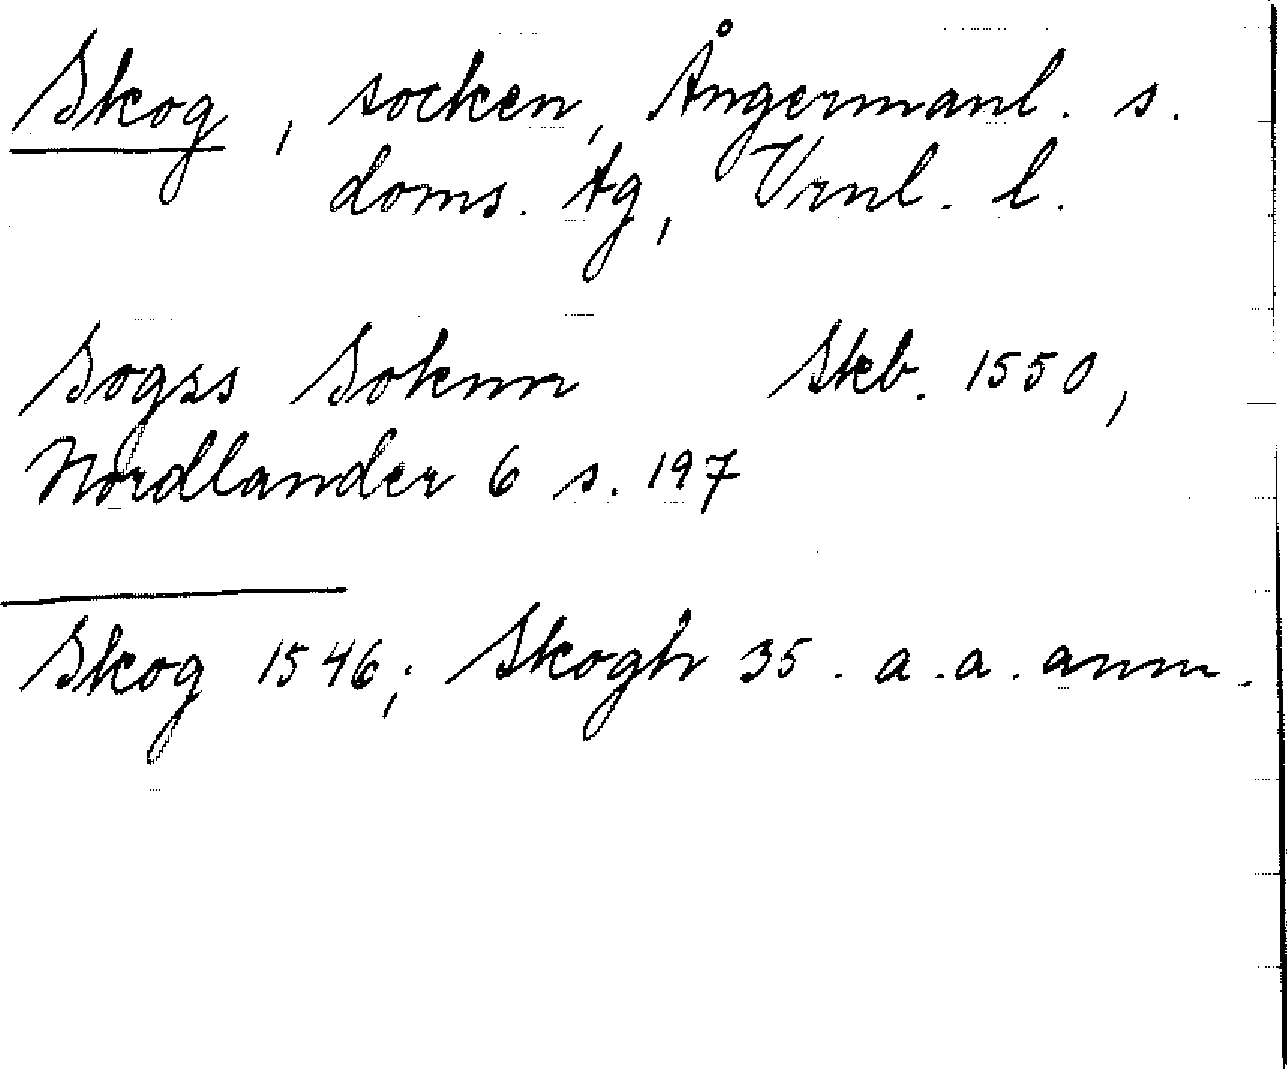 Skog, socken, Ångermanl. s.
doms. tg, Vrnl. l.
Sogss Soknn Skb. 1550,
Nordlander 6 s. 197
Skog 1546; Skogh 35. a.a. anm.